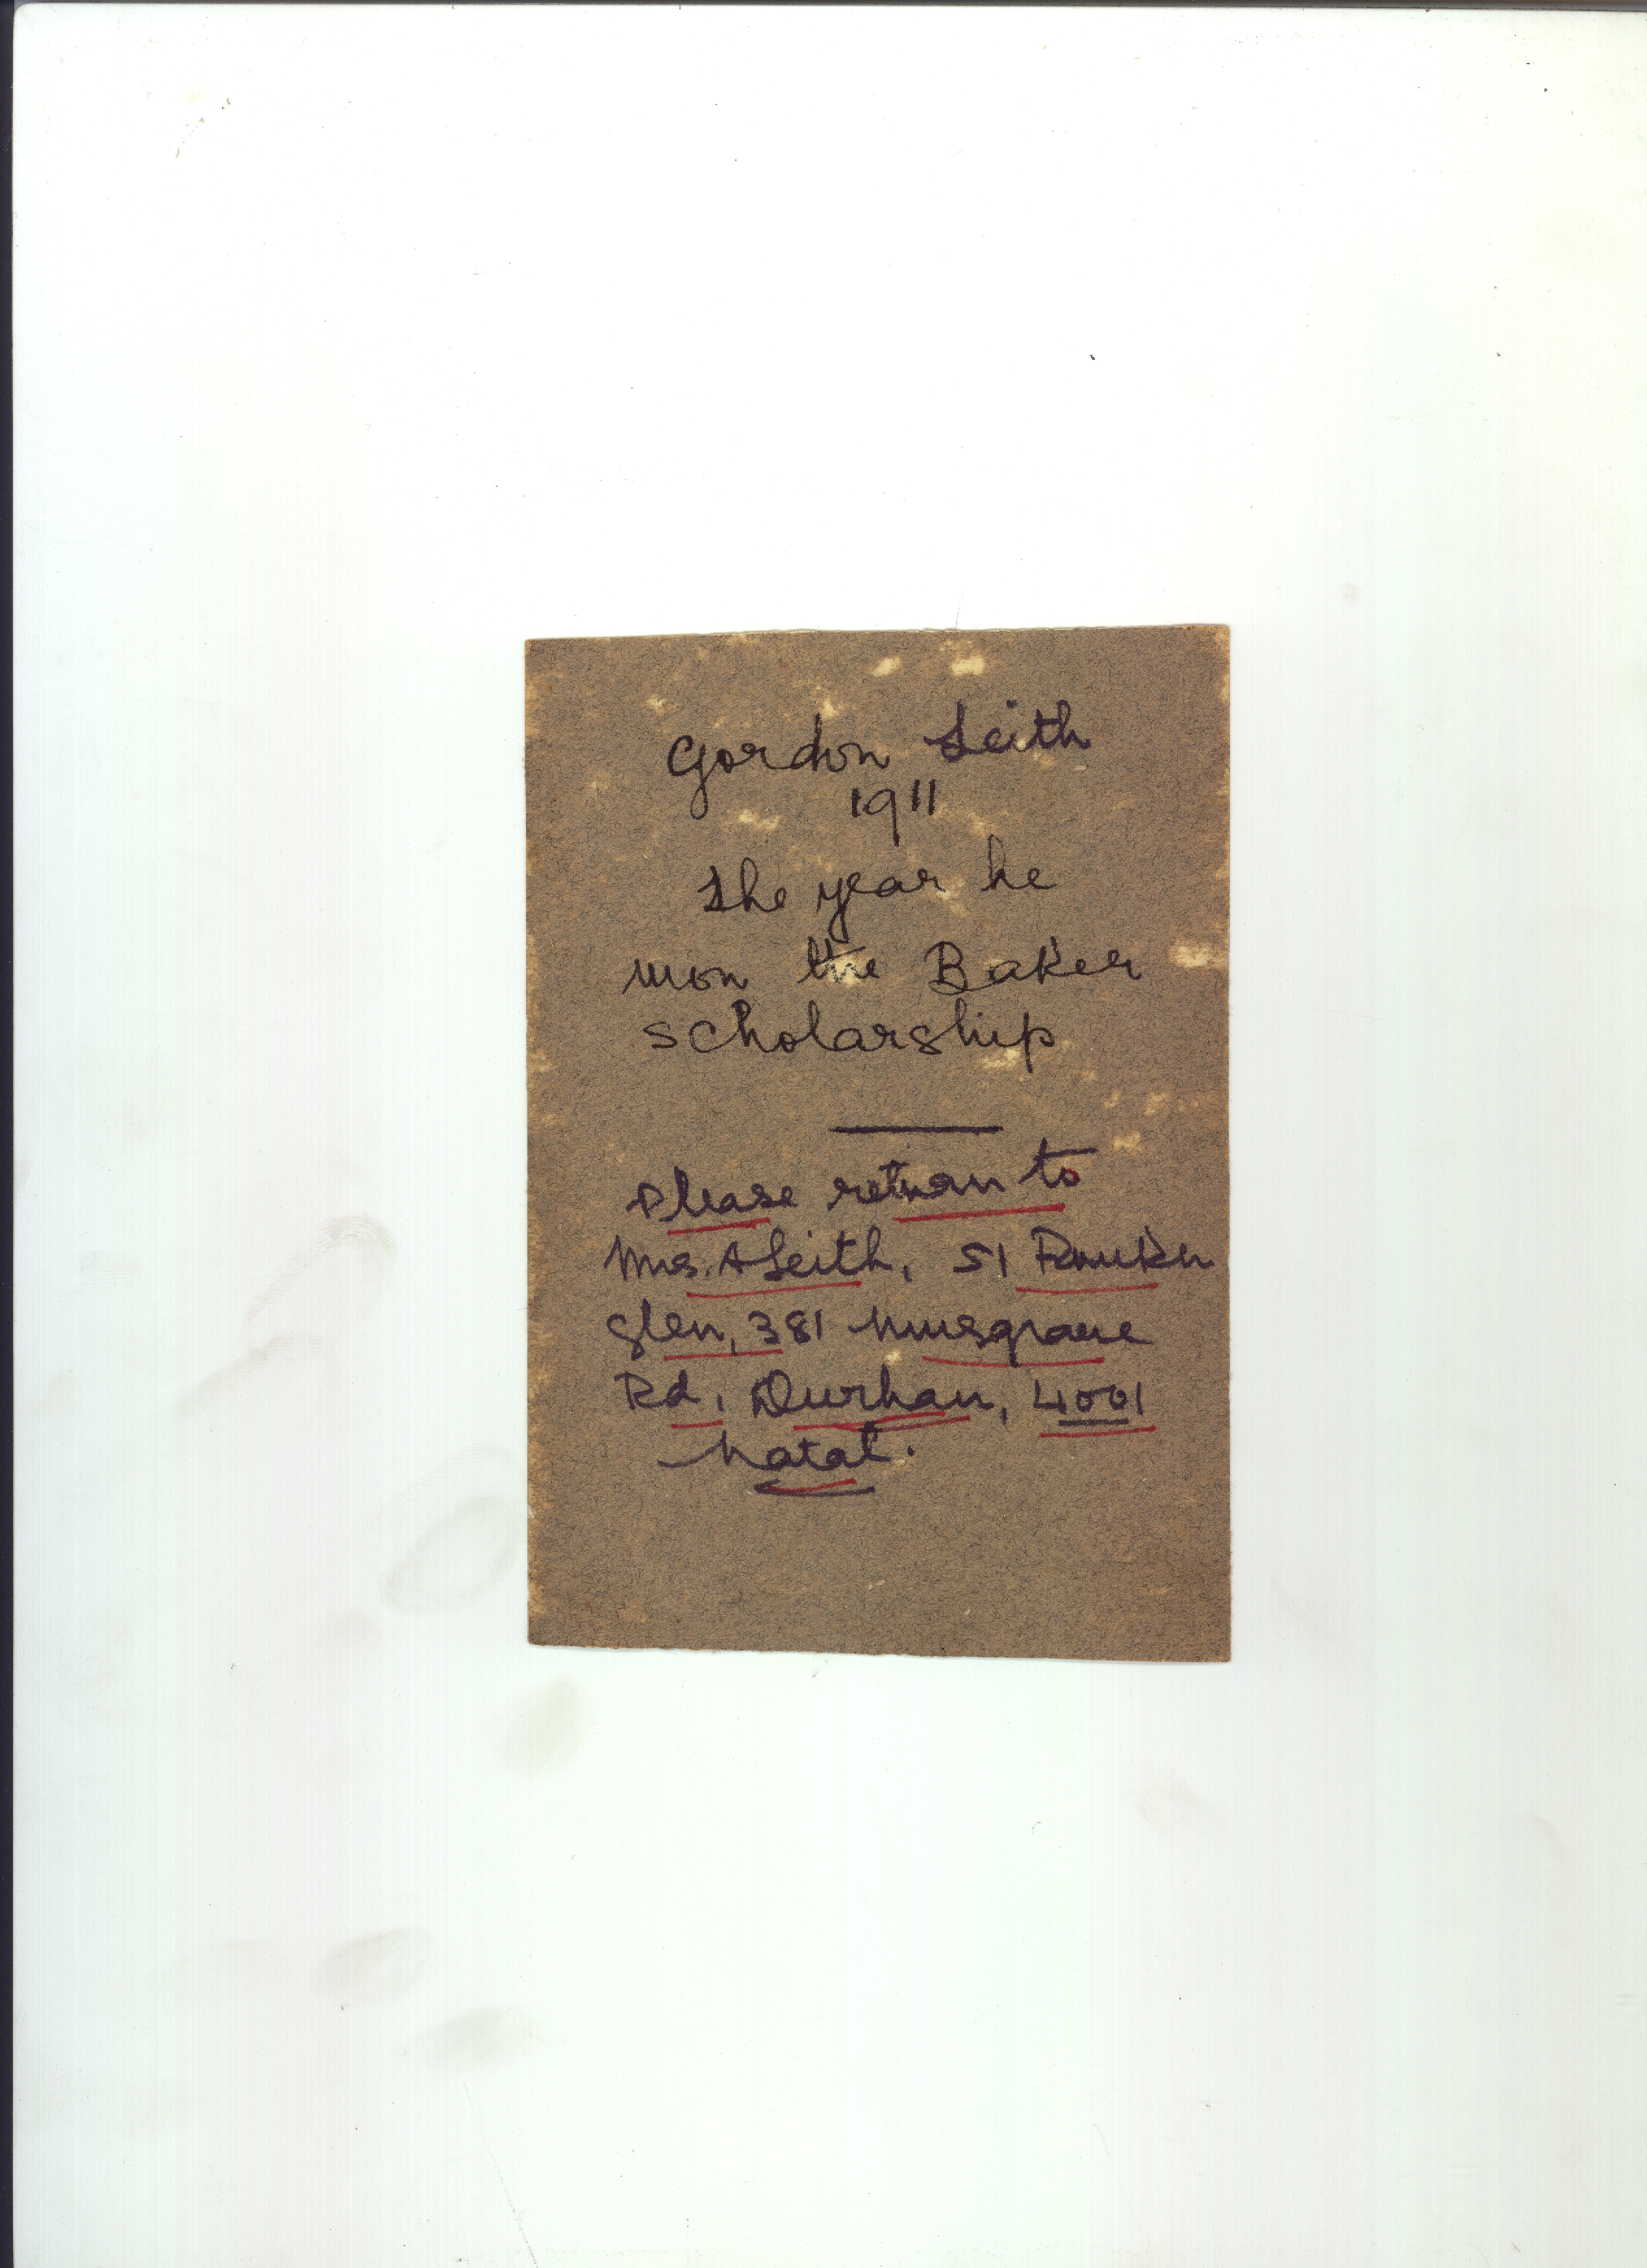 Gordon Leith
1911
The year he
won the Baker
Scholarship
Please return to
Mrs. A Leith, 51
Glen, 381 Musgrave
Rd, Durban, 4001
Natal.